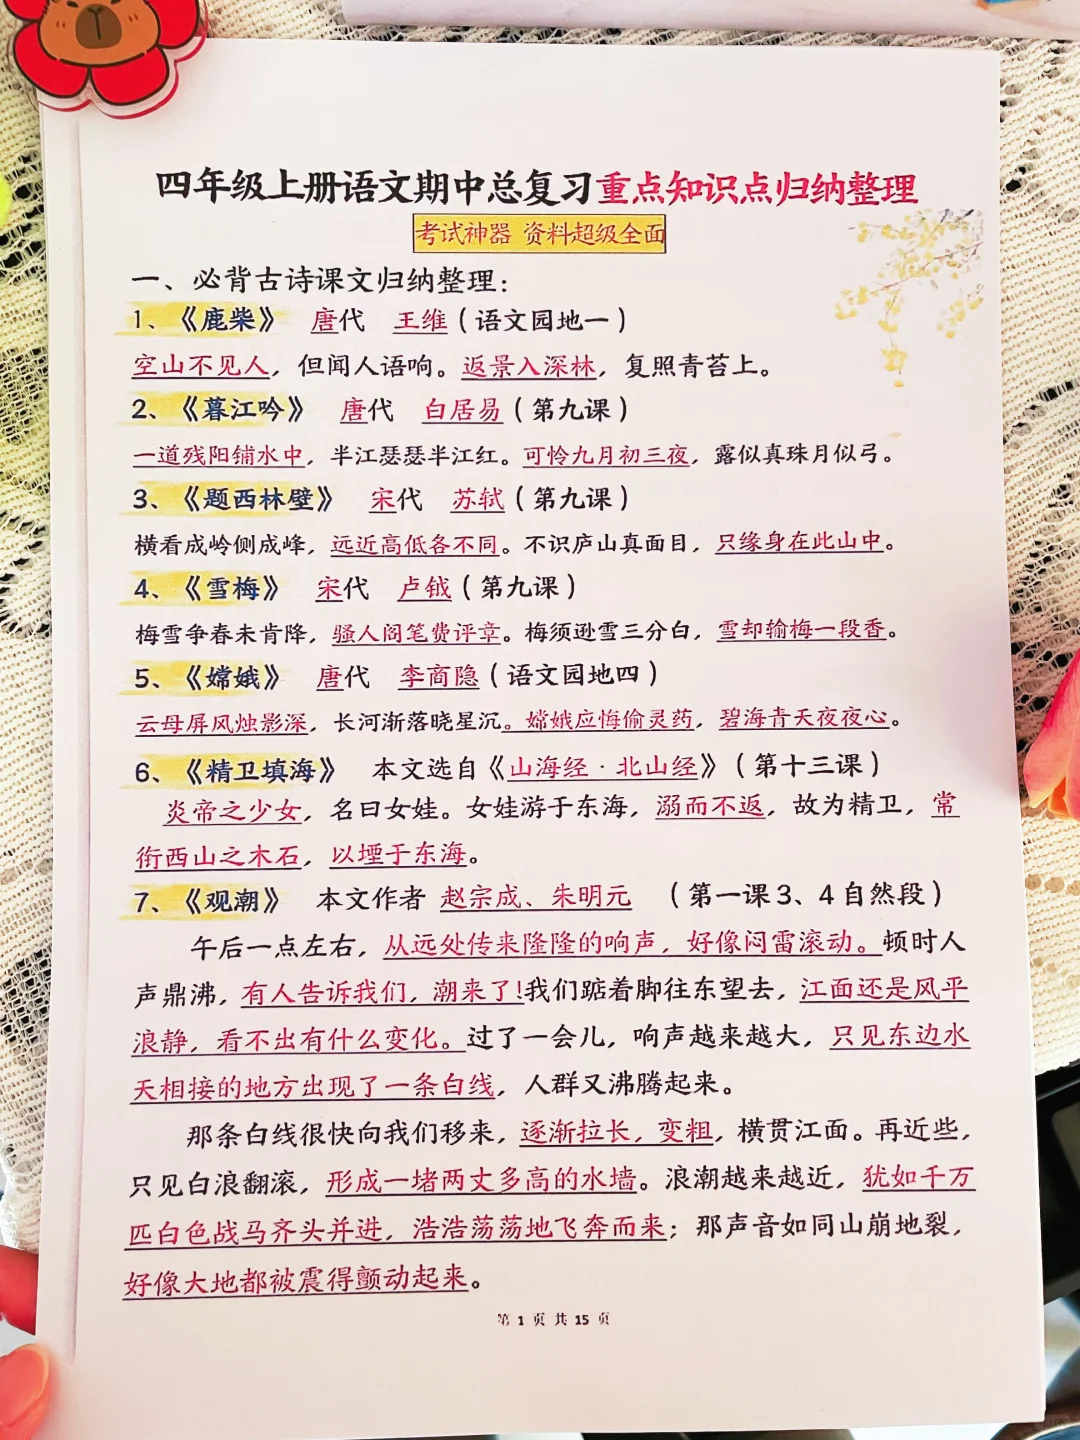 四年级上册语文期中总复习重点知识点归纳整理
考试神器 资料超级全面
一、必背古诗课文归纳整理：
1、《鹿柴》 唐代 王维（语文园地一）
空山不见人，但闻人语响。返景入深林，复照青苔上。
2、《暮江吟》 唐代 白居易（第九课）
一道残阳铺水中，半江瑟瑟半江红。可怜九月初三夜，露似真珠月似弓。
3、《题西林壁》 宋代 苏轼（第九课）
横看成岭侧成峰，远近高低各不同。不识庐山真面目，只缘身在此山中。
4、《雪梅》 宋代 卢钺（第九课）
梅雪争春未肯降，骚人阁笔费评章。梅须逊雪三分白，雪却输梅一段香。
5、《嫦娥》 唐代 李商隐（语文园地四）
云母屏风烛影深，长河渐落晓星沉。嫦娥应悔偷灵药，碧海青天夜夜心。
6、《精卫填海》 本文选自《山海经·北山经》（第十三课）
炎帝之少女，名曰女娃。女娃游于东海，溺而不返，故为精卫，常
衔西山之木石，以堙于东海。
7、《观潮》 本文作者 赵宗成、朱明元 （第一课3、4自然段）
午后一点左右，从远处传来隆隆的响声，好像闷雷滚动。顿时人
声鼎沸，有人告诉我们，潮来了！我们踮着脚往东望去，江面还是风平
浪静，看不出有什么变化。过了一会儿，响声越来越大，只见东边水
天相接的地方出现了一条白线，人群又沸腾起来。
那条白线很快向我们移来，逐渐拉长，变粗，横贯江面。再近些，
只见白浪翻滚，形成一堵两丈多高的水墙。浪潮越来越近，犹如千万
匹白色战马齐头并进，浩浩荡荡地飞奔而来；那声音如同山崩地裂，
好像大地都被震得颤动起来。
第 1 页 共 15 页